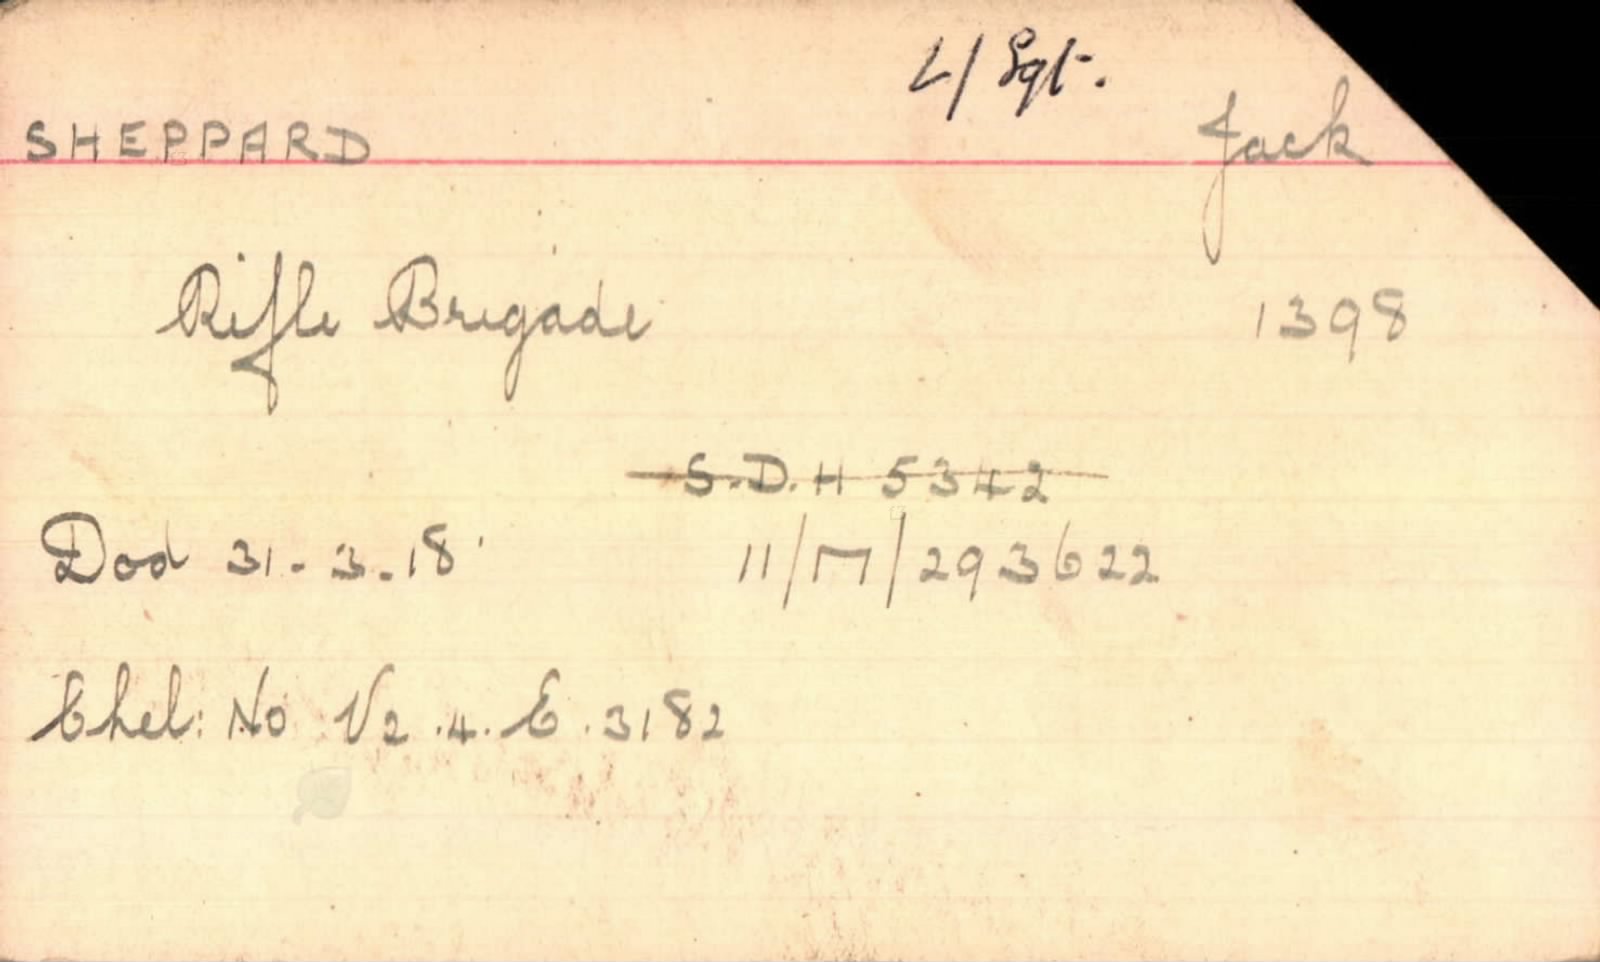 L/Sgt.
SHEPPARD Jack
Rifle Brigade 1398
S.D.H 5342
Dod 31-3-18 11/M/293622
Chel: No V2.4.E.3182